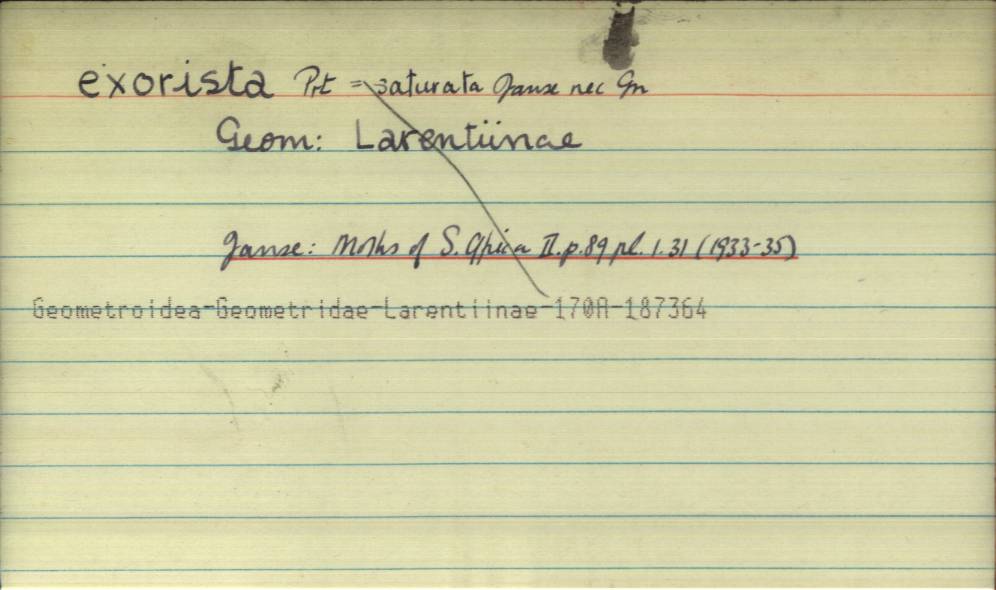 exorista Prt = saturata Janse nec Gn
Geom: Larentiinae
Janse: Moths of S. Africa II. p. 89 pl. 1. 31 (1933-35)
Geometroidea-Geometridae-Larentiinae-170A-187364